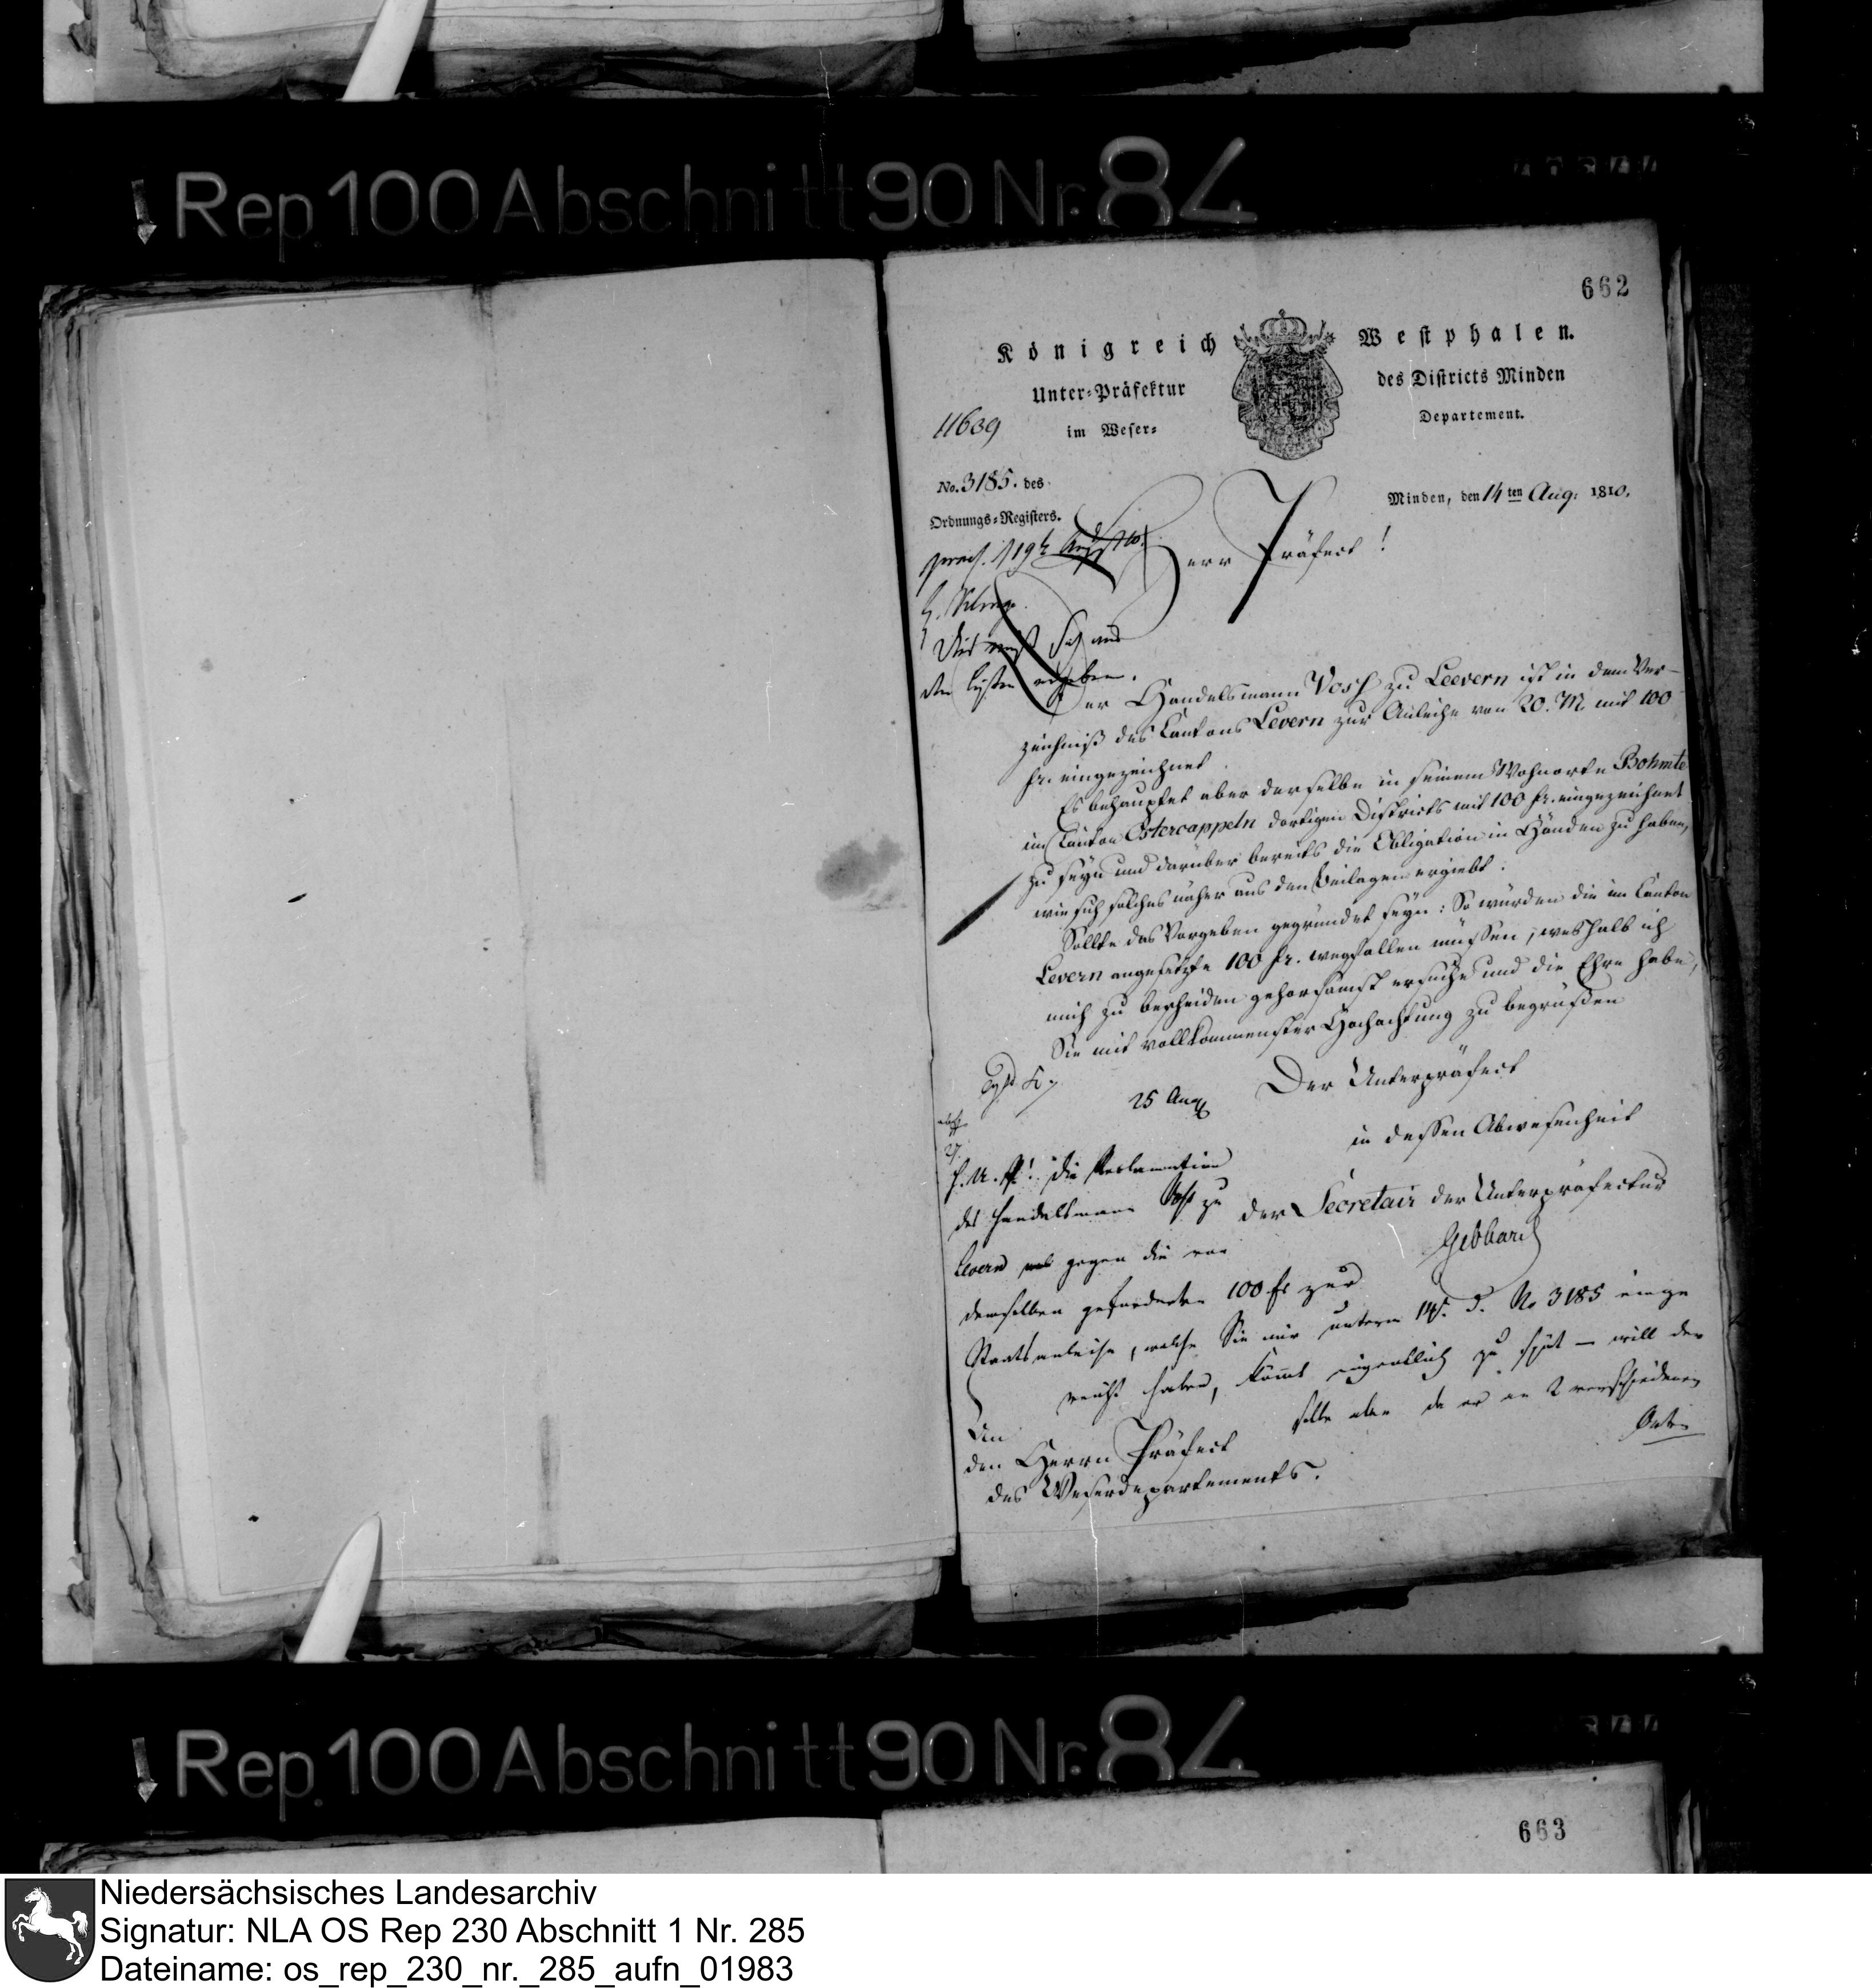 Rep. 100 Abschnitt 90 Nr. 84
662
Königreich Westphalen.
Unter-Präfektur des Districts Minden
im Weser- Departement.
11609
No. 3185. des
Ordnungs-Registers.
Minden, den 14 ten Aug: 1810.
Herr Präfect!
Der Handelsmann Voss zu Leevern ist in dem Ver-
zeichniß des Cantons Levern zur Anleihe von 20. M. mit 100
fr. eingezeichnet.
Es behauptet aber derselbe in seinem Wohnorte Bohmte
im Canton Ostercappeln dortigen Districts mit 100 fr. eingezeichnet
zu seyn und darüber bereits die Obligation in Händen zu haben,
wie sich solches näher aus den Beilagen ergiebt.
Sollte das Vorgeben gegründet seyn: So würden die im Canton
Levern angesetzte 100 fr. wegfallen müssen, weshalb ich
mich zu bescheiden gehorsamst ersuche und die Ehre habe,
Sie mit vollkommenster Hochachtung zu begrüßen
25 Aug
Der Unterpräfect
in dessen Abwesenheit
der Secretair der Unterpräfectur
Gebhard
H. U. P.! Die Reclamation
des Handelsmann Voß zu
Levern gegen die von
demselben geforderten 100 fr zur
Staatsanleihe, welche Sie mir unterm 14t. d. No 3185 einge
reicht haben, kömt eigentlich zu spät — will der
selbe aber da er an 2 verschiedenen
Orten
An
den Herrn Präfect
des Weserdepartements.
Rep. 100 Abschnitt 90 Nr. 84
663
Niedersächsisches Landesarchiv
Signatur: NLA OS Rep 230 Abschnitt 1 Nr. 285
Dateiname: os_rep_230_nr._285_aufn_01983